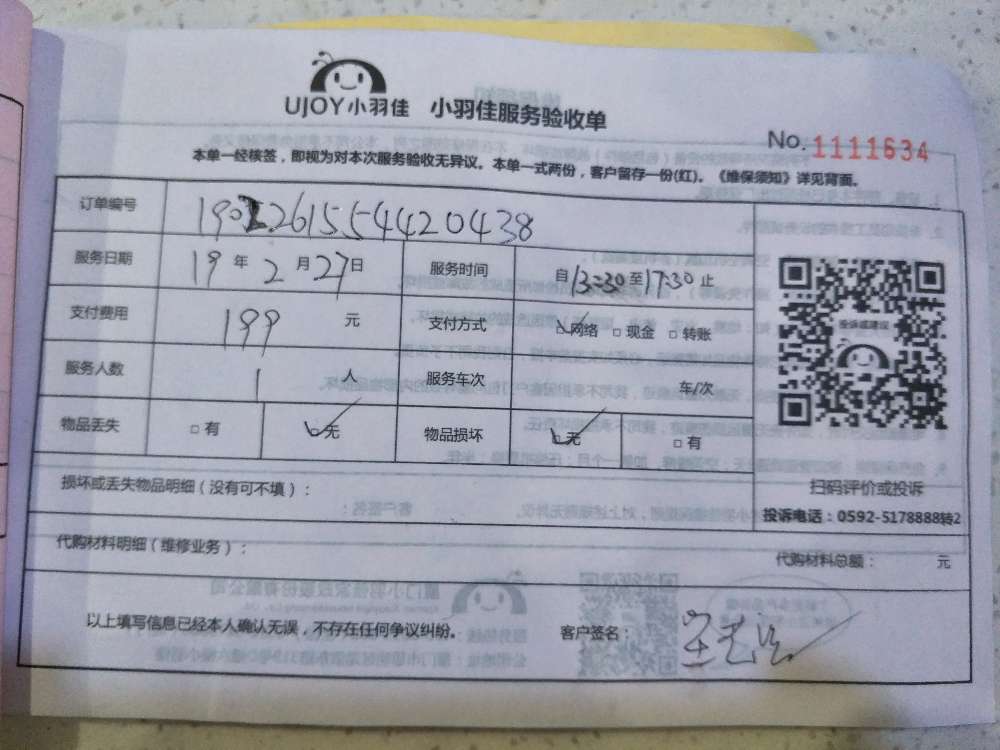 UJOY小羽佳 小羽佳服务验收单
No. 1111634
本单一经核签，即视为对本次服务验收无异议。本单一式两份，客户留存一份(红)。《维保须知》详见背面。
订单编号 19022615544420438
服务日期 19 年 2 月 27 日 服务时间 自 13:30 至 17:30 止
支付费用 199 元 支付方式 ☑网络 □ 现金 □ 转账
服务人数 1 人 服务车次 车/次
物品丢失 □ 有 ☑无 物品损坏 ☑无 □ 有
投诉或建议
扫码评价或投诉
损坏或丢失物品明细（没有可不填）：
投诉电话：0592-5178888转2
代购材料明细（维修业务）：
代购材料总额： 元
以上填写信息已经本人确认无误，不存在任何争议纠纷。 客户签名：